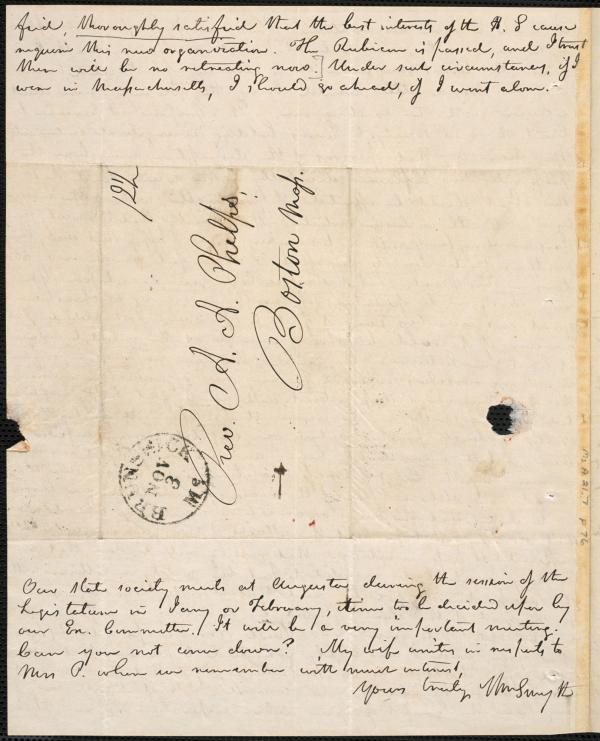 fied, thoroughly satisfied that the best interests of the A. S cause
require this new organization. The Rubicon is passed, and I trust
there will be no retreating now.] Under such circumstances, if I
were in Massachusetts, I should go ahead, if I went alone.
12½
Rev. A. A. Phelps,
Boston Mas.
BRUNSWICK Me
NOV
3
Our state society meets at Augusta during the session of the
Legislature in Jany or February, time to be decided upon by
our Ex. Committee. It will be a very important meeting.
Can you not come down? My wife unites in respects to
Mrs P. whom we remember with much interest,
Yours truly, Wm Smyth
Ms A 21.7 p 76